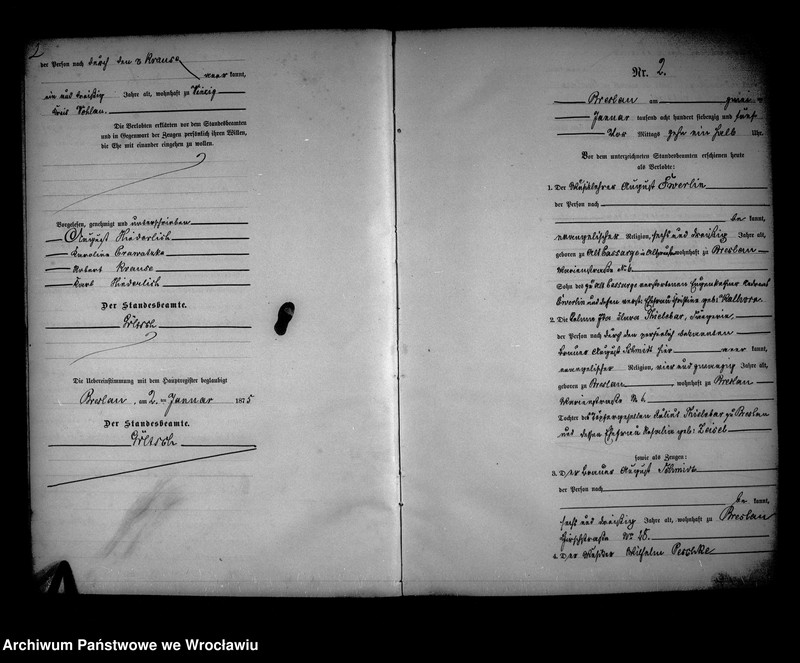 2
der Person nach durch den p Krause
aner kannt,
ein und dreißig Jahre alt, wohnhaft zu
Kreis Wohlau.
Die Verlobten erklärten vor dem Standesbeamten
und in Gegenwart der Zeugen persönlich ihren Willen,
die Ehe mit einander eingehen zu wollen.
Vorgelesen, genehmigt und unterschrieben
August Niederlich
Karoline
Robert Krause
Karl Niederlich
Der Standesbeamte.
Göltsch
Die Uebereinstimmung mit dem Hauptregister beglaubigt
Breslau, am 2. ten Januar 1875
Der Standesbeamte.
Göltsch
Nr. 2.
Breslau am zwei
Januar tausend acht hundert siebenzig und fünf
Vor Mittags zehn ein halb Uhr.
Vor dem unterzeichneten Standesbeamten erschienen heute
als Verlobte:
1. Der August Ewerlin
der Person nach
be kannt,
evangelischer Religion, sechs und dreißig Jahre alt,
geboren zu Alt Passarge wohnhaft zu Breslau
Marienstraße No 6.
Sohn des zu Alt Passarge verstorbenen Andreas
Ewerlin und dessen Ehefrau Christine geb:
2. Die Ida Clara Thielebar,
der Person nach durch den persönlich bekannten
August Schmidt hier aner kannt,
evangelischer Religion, vier und zwanzig Jahre alt,
geboren zu Breslau, wohnhaft zu Breslau
Marienstraße No 6.
Tochter des Töpfergesellen Julius Thielebar zu Breslau
und dessen Ehefrau Rosalie geb: Zeisel
sowie als Zeugen:
3. Der August Schmidt
der Person nach
be kannt,
sechs und dreißig Jahre alt, wohnhaft zu Breslau
Hirschstraße No 28.
4. Der Wilhelm Peschke
Archiwum Państwowe we Wrocławiu